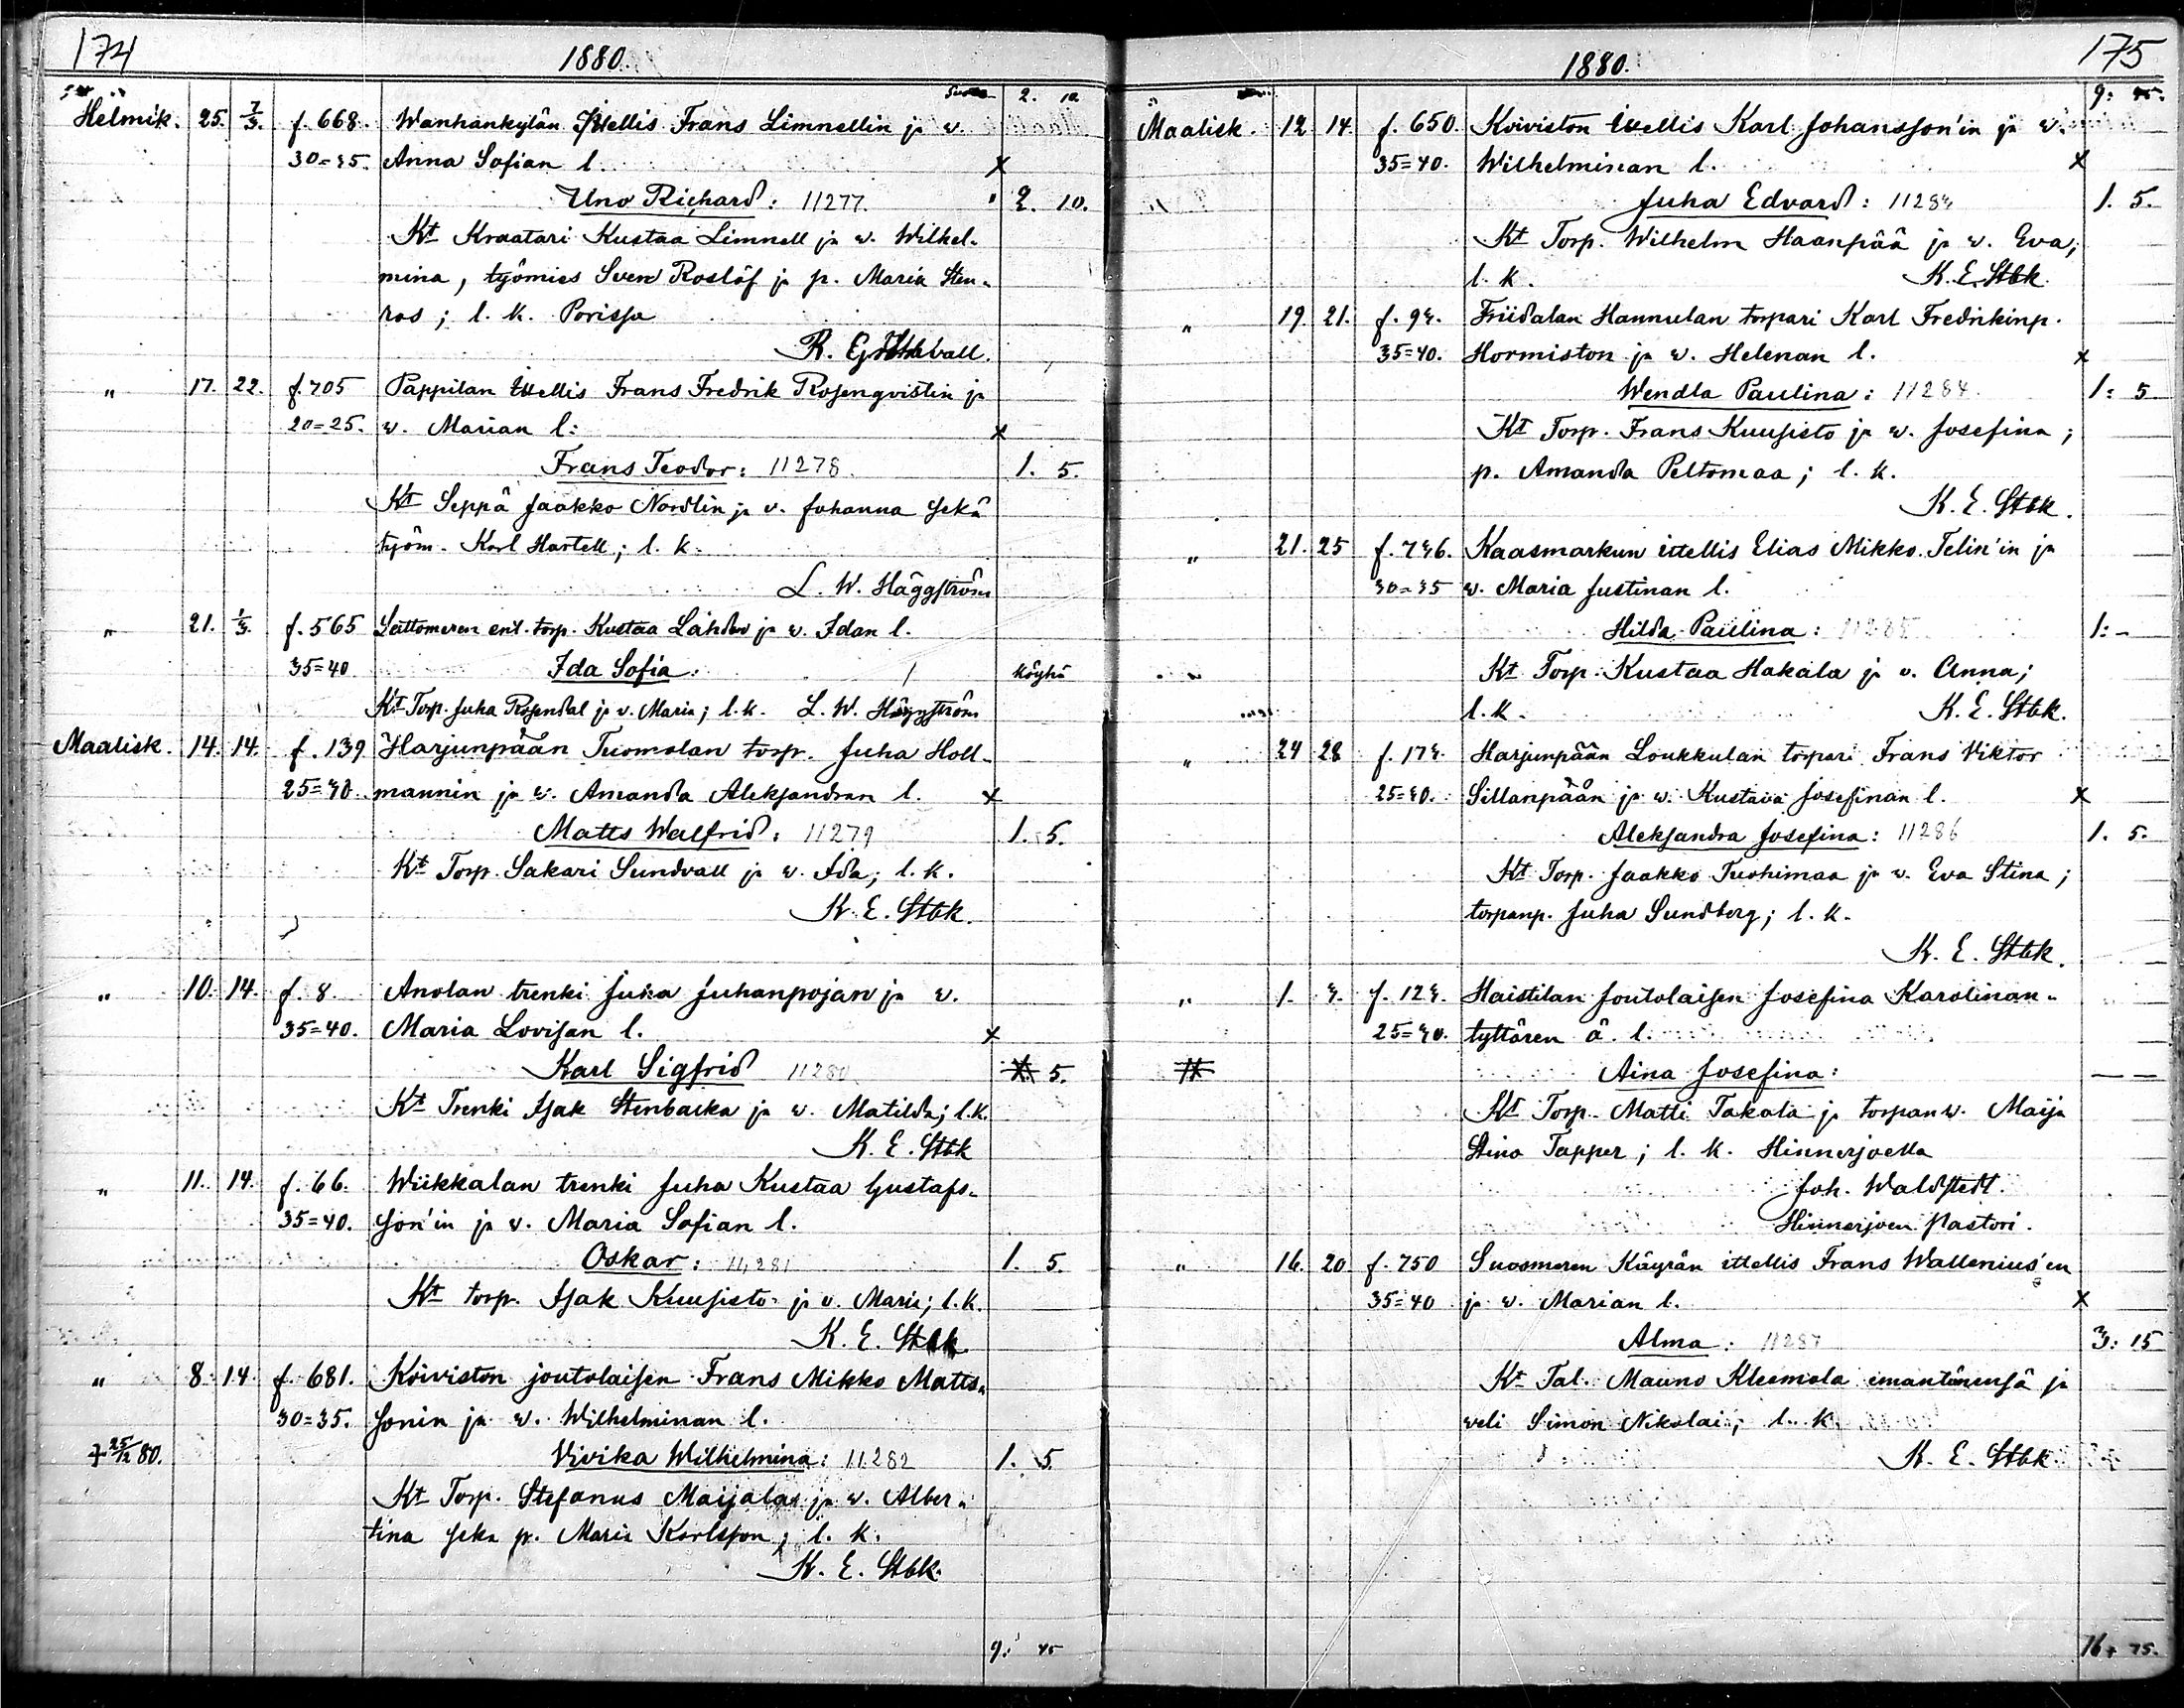 174
1880.
2. 10
Helmik. 25. 7/3. f. 668. Wanhankylän Ittellis Frans Limnellin ja w.
30=35. Anna Sofian l. x
Uno Richard: 11277. 2. 10.
Kt Kraatari Kustaa Limnell ja w. Wilhel-
mina, työmies Sven Roslöf ja p. Maria Sten-
ros; l. k. Porissa
" 17. 22. f. 705 Pappilan Ittellis Frans Fredrik Rosenqvistin ja
20=25. w. Marian l: x
Frans Teodor: 11278. 1. 5.
Kt Seppä Jaakko Nordlin ja v. Johanna sekä
työm. Karl Hartell; l. k.
L. W. Häggström
" 21. 1/3. f. 565 Lattomeren ent. torp. Kustaa Lähden ja w. Idan l.
35=40 Ida Sofia: köyhä
Kt Torp. Juha Rosendal ja v. Maria; l. k. L. W. Häggström
Maalisk. 14. 14. f. 139 Harjunpään Tuomolan torp. Juha Holl-
25=30. mannin ja w. Amanda Aleksandran l. x
Matts Walfrid: 11279 1. 5.
Kt Torp. Sakari Sundvall ja w. Ida; l. k.
K. E. Stbk.
" 10. 14. f. 8. Anolan trenki Juha Juhanpojan ja w.
35=40. Maria Lovisan l. x
Karl Sigfrid 11280 5.
Kt Trenki Isak Stenbacka ja w. Matilda; l. k.
K. E. Stbk
" 11. 14. f. 66. Wiikkalan trenki Juha Kustaa Gustafs-
35=40. son'in ja v. Maria Sofian l.
Oskar: 11281 1. 5.
Kt torp. Isak Kuusisto ja v. Maria; l. k.
K. E. Stbk
" 8. 14. f. 681. Koiviston joutolaisen Frans Mikko Matts-
30=35. sonin ja w. Wilhelminan l.
† 25/12 80. Vivika Wilhelmina: 11282 1. 5.
Kt Torp. Stefanus Maijala ja w. Alber-
tina seka p. Maria Karlsson; l. k.
K. E. Stbk.
9: 45
175
1880.
9: 45.
Maalisk. 12 14 f. 650. Koiviston ittellis Karl Johansson'in ja w.
35=40. Wilhelminan l. x
Juha Edvard: 11283 1. 5.
Kt Torp. Wilhelm Haanpää ja w. Eva;
l. k. K. E. Stbk.
" 19. 21. f. 93. Friidalan Hannulan torpari Karl Fredrikinp.
35=40. Hormiston ja w. Helenan l. x
Wendla Paulina: 11284. 1: 5
Kt Torp. Frans Kuusisto ja w. Josefina;
p. Amanda Peltomaa; l. k.
K. E. Stbk.
" 21. 25 f. 736. Kaasmarkun ittellis Elias Mikko Telin'in ja
30=35 w. Maria Justinan l.
Hilda Paulina: 11285 1: -
Kt Torp. Kustaa Hakala ja v. Anna;
l. k. K. E. Stbk.
" 24 28 f. 173. Harjunpään Loukkulan torpari Frans Viktor
25=30. Sillanpään ja w. Kustava Josefinan l. x
Aleksandra Josefina: 11286 1. 5.
Kt Torp. Jaakko Tuohimaa ja w. Eva Stina;
torpanp. Juha Sundberg; l. k.
K. E. Stbk.
" 1. 3. f. 123. Haistilan Joutolaisen Josefina Karolinan-
25=30. tyttären ä. l.
Aina Josefina: — —
Kt Torp. Matti Takala ja torpan w. Maija
Stina Tapper; l. k. Hinnerjoella
Joh. Waldstedt.
Hinnerjoen Pastori.
" 16. 20 f. 750 Suosmeren Käyrän ittellis Frans Wallenius'en
35=40 ja w. Marian l. x
Alma: 11287 3: 15
Kt Tal. Mauno Kleemola emantänensä ja
weli Simon Nikolai; l. k.
K. E. Stbk
16 75.